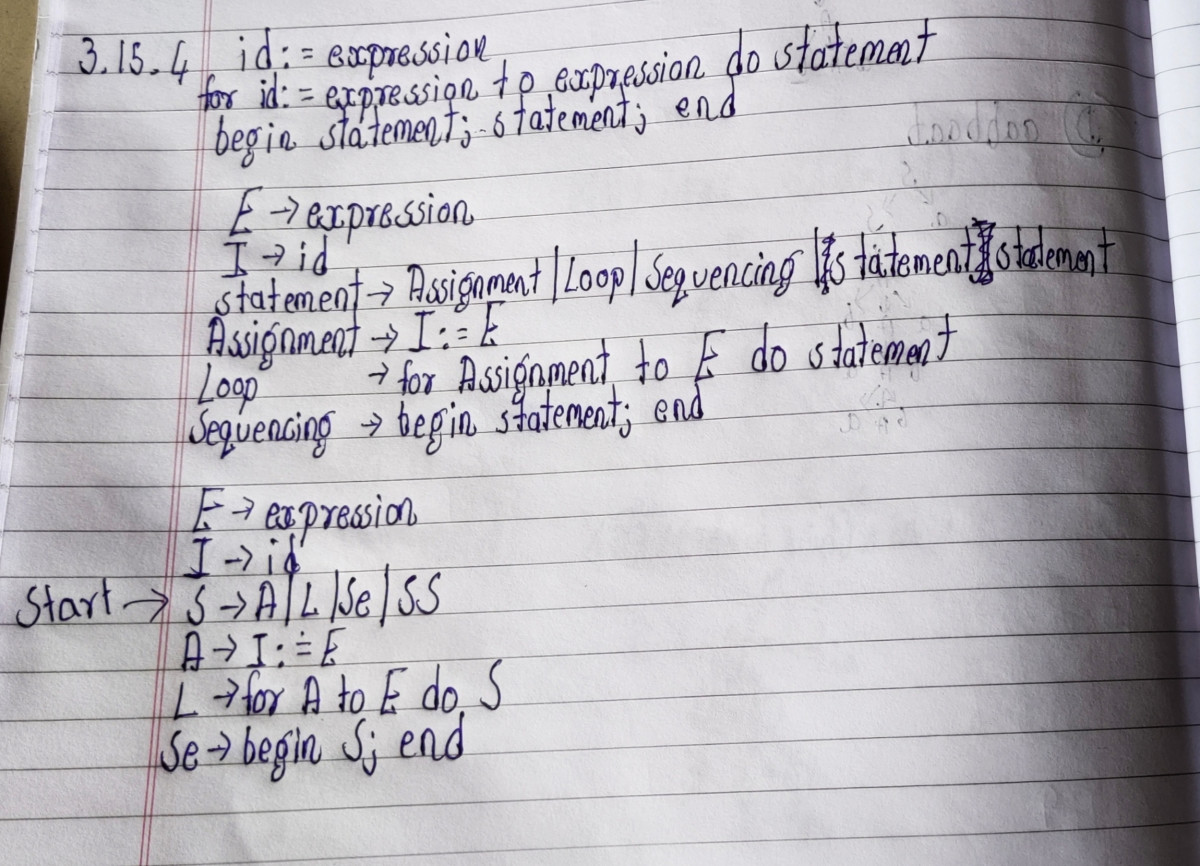 3.15.4 id:= expression
for id:= expression to expression do statement
begin statement; statement; end
E → expression
I → id
statement → Assignment | Loop | Sequencing | statement statement
Assignment → I:= E
Loop → for Assignment to E do statement
Sequencing → begin statement; end
E → expression
I → id
Start → S → A | L | Se | SS
A → I:= E
L → for A to E do S
Se → begin S; end